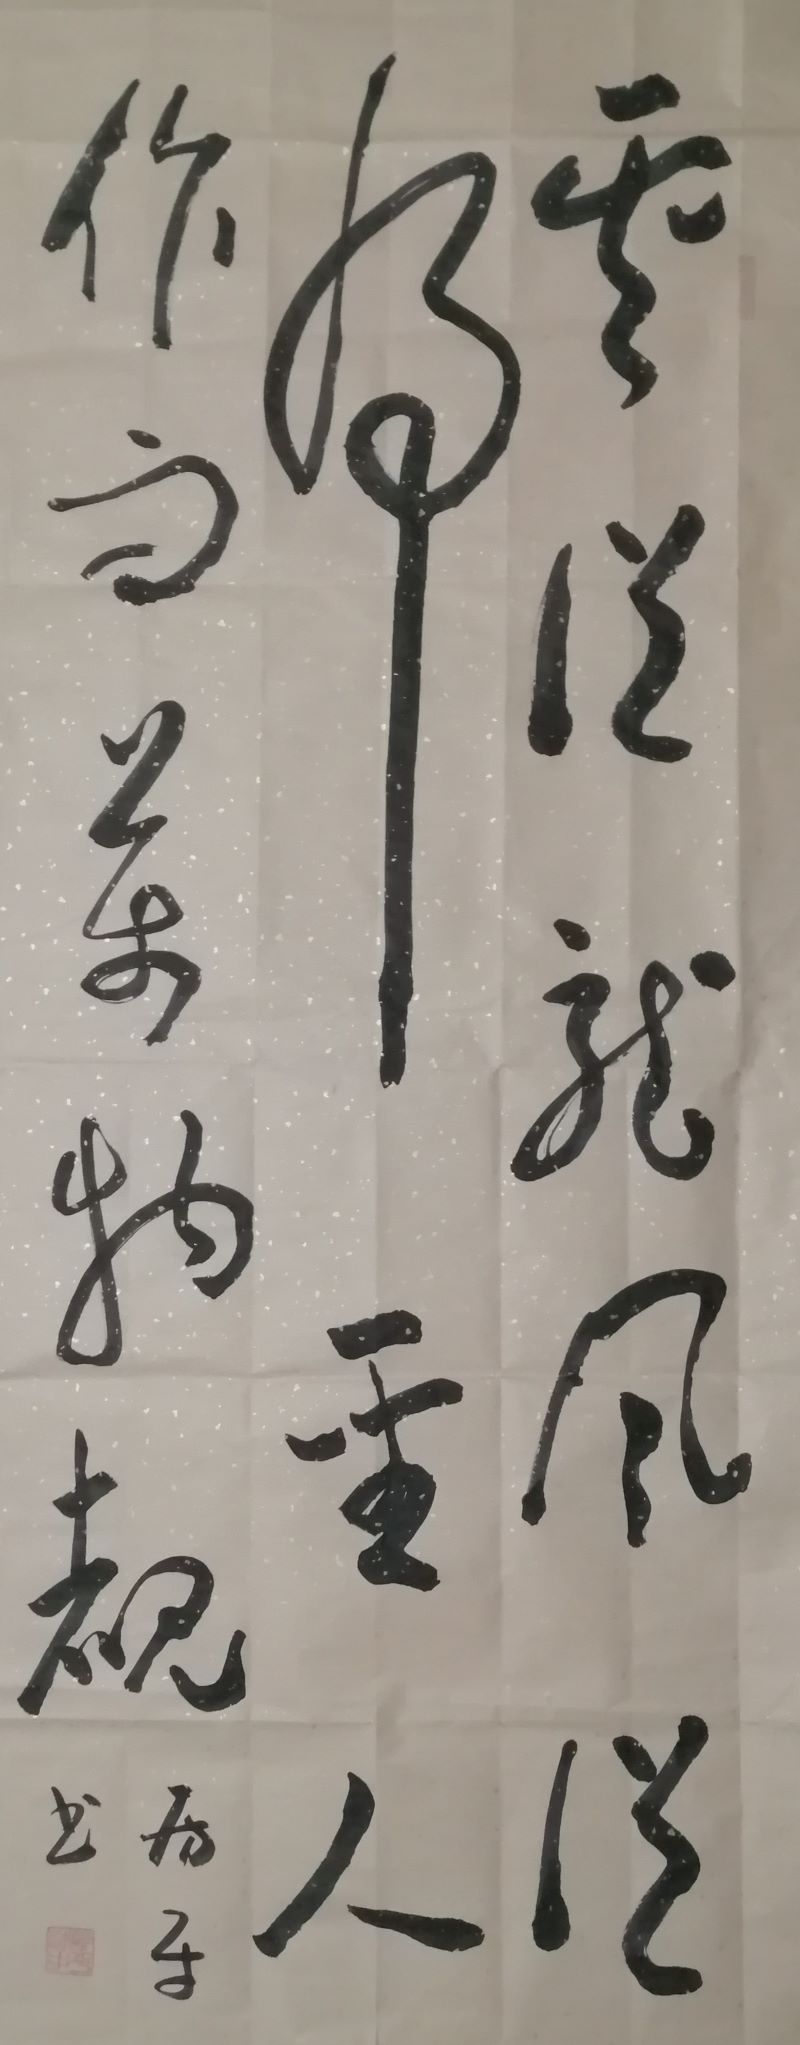 雲從龍風從
虎聖人
作而萬物覩
书